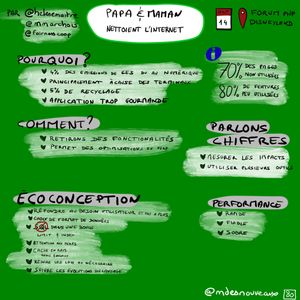 PAR @hdelemaitre
@mmarchois
@fairness.coop
PAPA & MAMAN
NETTOIENT L'INTERNET
14
FORUM PHP
DISNEYLAND
POURQUOI ?
4% DES ÉMISSIONS DE GES DU AU NUMÉRIQUE
PRINCIPALEMENT À CAUSE DES TERMINAUX
5% DE RECYCLAGE
APPLICATION TROP GOURMANDE
i
70% DES PAGES
NON UTILISÉES
80% DE FEATURES
PEU UTILISÉES
COMMENT ?
RETIRONS DES FONCTIONALITÉS
PERMET DES OPTIMISATIONS
PARLONS
CHIFFRES
MESURER LES IMPACTS
UTILISER PLUSIEURS OUTILS
ÉCOCONCEPTION
RÉPONDRE AU BESOIN UTILISATEUR
FORMAT DE DONNÉES
DANS UNE BOUCLE
LIMIT & INDEX
ATTENTION AU
CACHE EN
AU NÉCESSAIRE
SUIVRE LES ÉVOLUTIONS DU LANGAGE
PERFORMANCE
RAPIDE
FIABLE
SOBRE
@mdesnouveaux